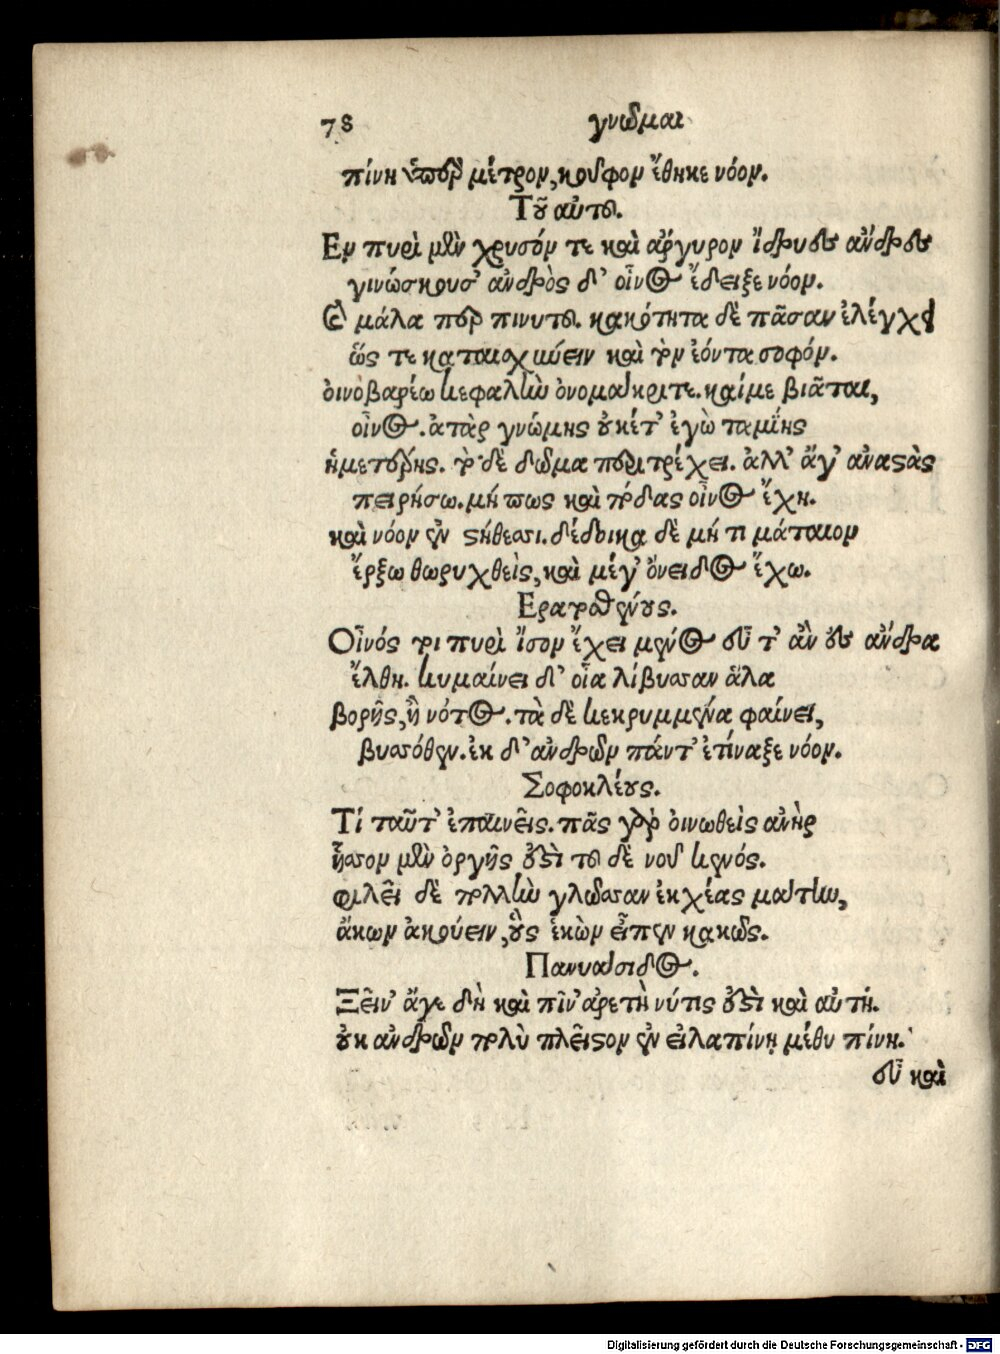 78 γνῶμαι
πίνη ὑπὲρ μέτρον, κοῦφον ἔθηκε νόον.
Τοῦ αὐτοῦ.
Εν πυρὶ μὲν χρυσόν τε καὶ ἄργυρον ἴδριες ἄνδρες
γινώσκουσ' ἀνδρὸς δ' οἶνος ἔδειξε νόον.
Καὶ μάλα περ πινυτοῦ. κακότητα δὲ πᾶσαν ἐλέγχει
ὥς τε καταισχύνειν καὶ τὸν ἐόντα σοφόν.
οἰνοβαρέω κεφαλὴν ὀνομάκριτε. καίμε βιᾶται,
οἶνος. ἀτὰρ γνώμης οὐκέτ' ἐγὼ ταμίης
ἡμετέρης. τὸ δὲ δῶμα περιτρέχει. ἀλλ' ἄγ' ἀναστὰς
πειρήσω. μή πως καὶ πόδας οἶνος ἔχη.
καὶ νόον ἐν στήθεσσι. δέδοικα δὲ μή τι μάταιον
ἔρξω θωρυχθεὶς, καὶ μέγ' ὄνειδος ἔχω.
Ερατοσθένους.
Οἶνός τοι πυρὶ ἴσον ἔχει μένος εὖ τ' ἂν ἐς ἄνδρα
ἔλθη. κυμαίνει δ' οἷα λίβυσσαν ἅλα
βορῆς, ἢ νότος. τὰ δὲ κεκρυμμένα φαίνει,
βυσσόθεν. ἐκ δ' ἀνδρῶν πάντ' ἐτίναξε νόον.
Σοφοκλέους.
Τί ταῦτ' ἐπαινεῖς. πᾶς γὰρ οἰνωθεὶς ἀνὴρ
ἧσσον μὲν ὀργῆς ἐστὶ τοῦ δὲ νοῦ κενός.
φιλεῖ δὲ πολλὴν γλῶσσαν ἐκχέας μάτην,
ἄκων ἀκούειν, οὓς ἑκὼν εἶπεν κακῶς.
Πανυάσιδος.
Ξεῖν' ἄγε δὴ καὶ πῖν' ἀρετὴ νύτις ἐστὶ καὶ αὐτή.
ὅκ ἀνδρῶν πολὺ πλεῖστον ἐν εἰλαπίνη μέθυ πίνη.
εὖ καὶ
Digitalisierung gefördert durch die Deutsche Forschungsgemeinschaft - DFG